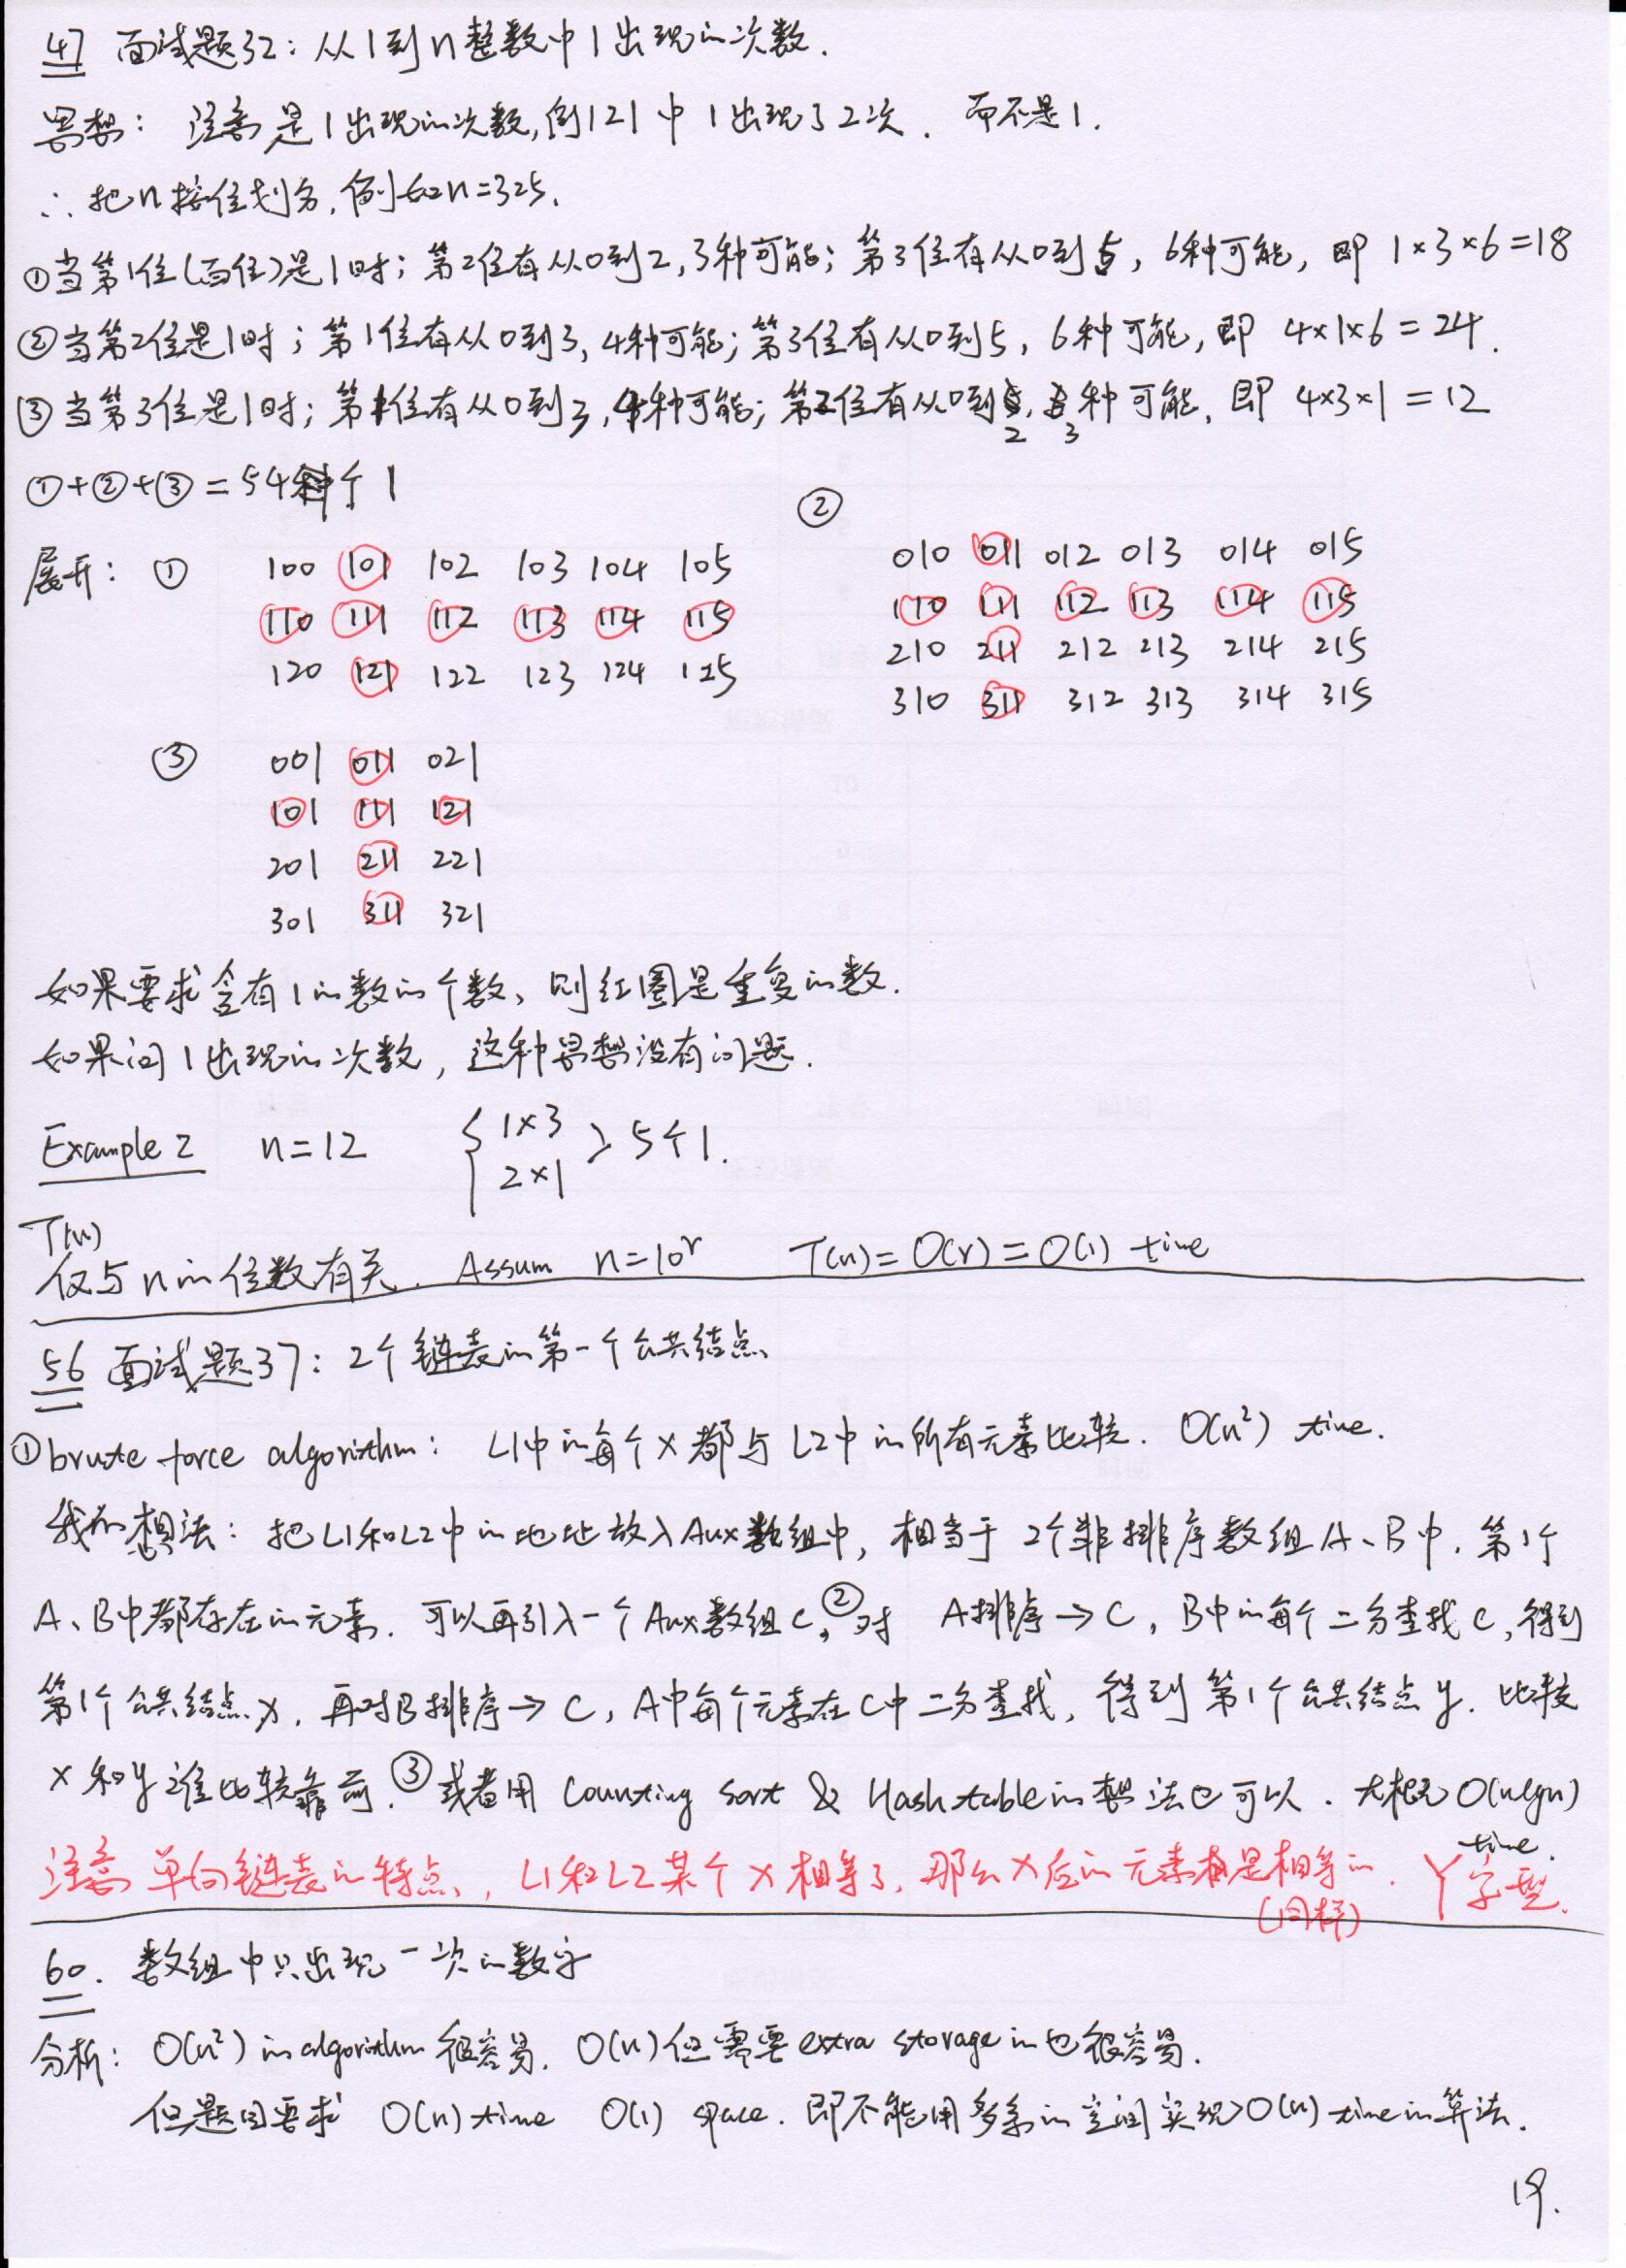 47 面试题32: 从1到n整数中1出现的次数.
思想: 注意是1出现的次数, 例121中1出现了2次. 而不是1.
∴ 把n按位划分, 例如n=325.
①当第1位(百位)是1时; 第2位有从0到2, 3种可能; 第3位有从0到5, 6种可能, 即 1×3×6=18
②当第2位是1时; 第1位有从0到3, 4种可能; 第3位有从0到5, 6种可能, 即 4×1×6=24.
③当第3位是1时; 第1位有从0到3, 4种可能; 第2位有从0到2, 3种可能, 即 4×3×1=12
①+②+③=54个1
展开: ① 100 101 102 103 104 105
110 111 112 113 114 115
120 121 122 123 124 125
② 010 011 012 013 014 015
110 111 112 113 114 115
210 211 212 213 214 215
310 311 312 313 314 315
③ 001 011 021
101 111 121
201 211 221
301 311 321
如果要求含有1的数的个数, 则红圈是重复的数.
如果问1出现的次数, 这种思想没有问题.
Example 2 n=12 { 1×3
2×1 > 5个1.
T(n)
仅与n的位数有关. Assum n=10^r T(n)=O(r)=O(1) time
56 面试题37: 2个链表的第一个公共结点
①brute force algorithm: L1中的每个x都与L2中的所有元素比较. O(n²) time.
我的想法: 把L1和L2中的地址放入Aux数组中, 相当于2个非排序数组A、B中, 第1个
A、B中都存在的元素. 可以再引入一个Aux数组C, ②对 A排序→C, B中的每个二分查找C, 得到
第1个公共结点x, 再对B排序→C, A中每个元素在C中二分查找, 得到第1个公共结点y. 比较
x和y谁比较靠前. ③或者用 Counting sort & Hash table的想法也可以. 大概O(nlgn)
time.
注意 单向链表的特点, L1和L2某个x相等了, 那么x后的元素都是相等的. Y字型.
(同样)
60. 数组中只出现一次的数字
分析: O(n²)的algorithm很容易. O(n)但需要extra storage的也很容易.
但题目要求 O(n) time O(1) space. 即不能用多余的空间实现O(n) time的算法.
19.